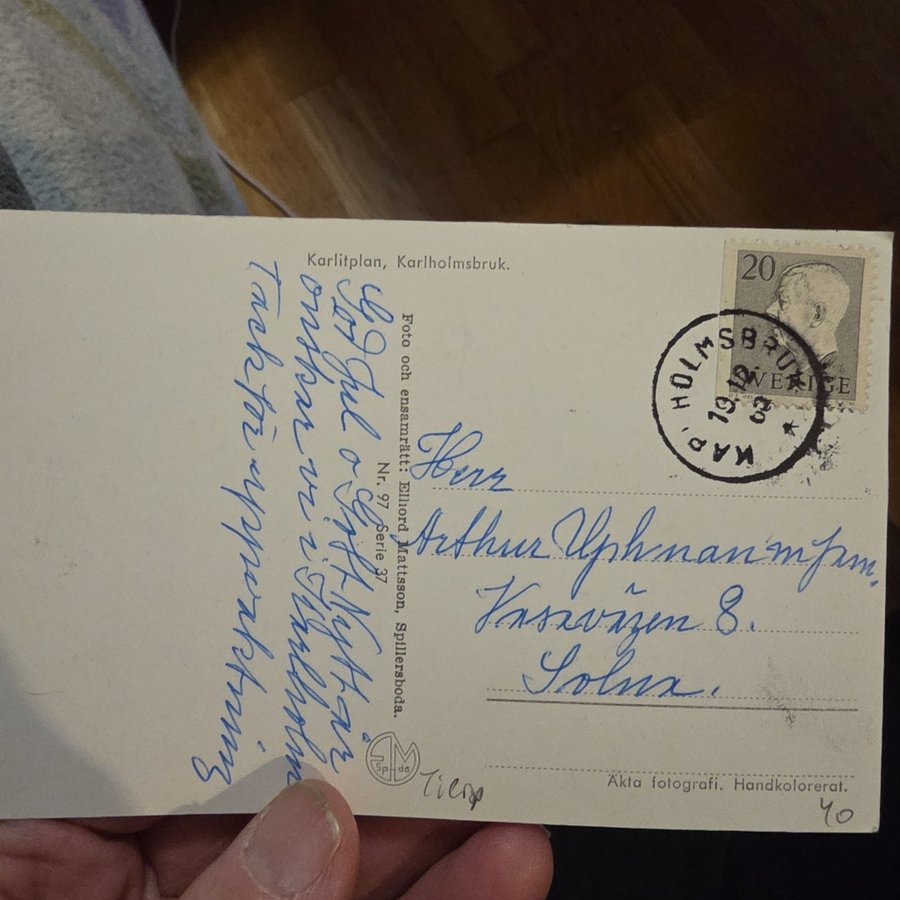 Karlitplan, Karlholmsbruk.
God Jul o Gott Nytt År
önskar vi i Karlholm
Tack för uppvaktning
Foto och ensamrätt: Elliord Mattsson, Spillersboda.
Nr. 97 Serie 37
20
SVERIGE
KARLHOLMSBRUK
19.12.
Herr
Arthur Uphman m fam.
Vasavägen 8.
Solna.
Äkta fotografi. Handkolorerat.
Tierp
40